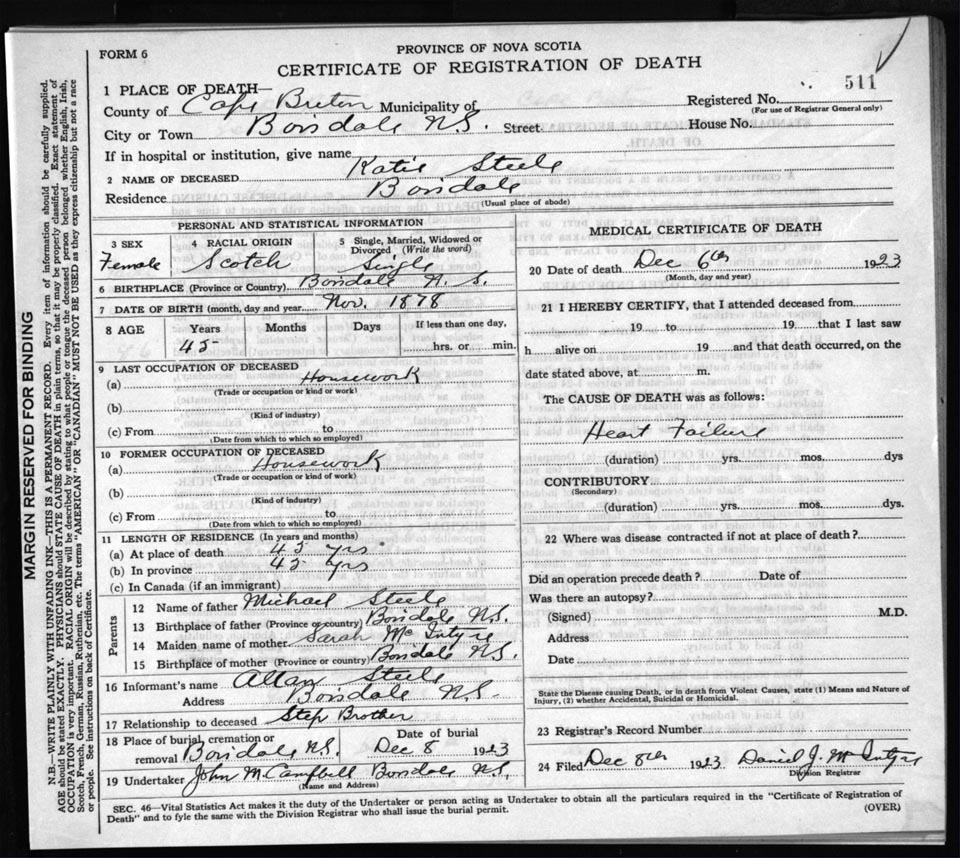 FORM 6
PROVINCE OF NOVA SCOTIA
CERTIFICATE OF REGISTRATION OF DEATH
511
1 PLACE OF DEATH—
County of Cape Breton Municipality of
Registered No.
(For use of Registrar General only)
City or Town Boisdale N.S. Street House No.
If in hospital or institution, give name
2 NAME OF DECEASED Katie Steele
Residence Boisdale
(Usual place of abode)
PERSONAL AND STATISTICAL INFORMATION
3 SEX 4 RACIAL ORIGIN 5 Single, Married, Widowed or Divorced (Write the word)
Female Scotch Single
6 BIRTHPLACE (Province or Country) Boisdale N.S.
7 DATE OF BIRTH (month, day and year) Nov. 1878
8 AGE Years Months Days If less than one day,
45 hrs. or min.
9 LAST OCCUPATION OF DECEASED
(a) Housework
(Trade or occupation or kind or work)
(b)
(Kind of industry)
(c) From to
(Date from which to which so employed)
10 FORMER OCCUPATION OF DECEASED
(a) Housework
(Trade or occupation or kind of work)
(b)
(Kind of industry)
(c) From to
(Date from which to which so employed)
11 LENGTH OF RESIDENCE (In years and months)
(a) At place of death 45 yrs
(b) In province 45 yrs
(c) In Canada (if an immigrant)
Parents
12 Name of father Michael Steele
13 Birthplace of father (Province or country) Boisdale N.S.
14 Maiden name of mother Sarah McIntyre
15 Birthplace of mother (Province or country) Boisdale N.S.
16 Informant's name Allan Steele
Address Boisdale N.S.
17 Relationship to deceased Step Brother
18 Place of burial, cremation or removal Boisdale N.S. Date of burial Dec 8 1923
19 Undertaker John M. Campbell Boisdale N.S.
(Name and Address)
MEDICAL CERTIFICATE OF DEATH
20 Date of death Dec 6th 1923
(Month, day and year)
21 I HEREBY CERTIFY, that I attended deceased from
19 to 19 that I last saw
h alive on 19 and that death occurred, on the
date stated above, at m.
The CAUSE OF DEATH was as follows:
Heart Failure
(duration) yrs. mos. dys
CONTRIBUTORY
(Secondary)
(duration) yrs. mos. dys.
22 Where was disease contracted if not at place of death?
Did an operation precede death? Date of
Was there an autopsy?
(Signed) M.D.
Address
Date
State the Disease causing Death, or in death from Violent Causes, state (1) Means and Nature of
Injury, (2) whether Accidental, Suicidal or Homicidal.
23 Registrar's Record Number
24 Filed Dec 8th 1923 Daniel J. McIntyre
Division Registrar
SEC. 46—Vital Statistics Act makes it the duty of the Undertaker or person acting as Undertaker to obtain all the particulars required in the "Certificate of Registration of
Death" and to fyle the same with the Division Registrar who shall issue the burial permit.
(OVER)
MARGIN RESERVED FOR BINDING
N.B.—WRITE PLAINLY WITH UNFADING INK—THIS IS A PERMANENT RECORD. Every item of information should be carefully supplied.
AGE should be stated EXACTLY. PHYSICIANS should STATE CAUSE OF DEATH in plain terms, so that it may be properly classified. Exact statement of
OCCUPATION is very important. RACIAL ORIGIN will be described by stating to what people or tongue the deceased person belonged whether English, Irish,
Scotch, French, German, Russian, Ruthenian, etc. The terms "AMERICAN" OR "CANADIAN" MUST NOT BE USED as they express citizenship but not a race
or people. See instructions on back of Certificate.